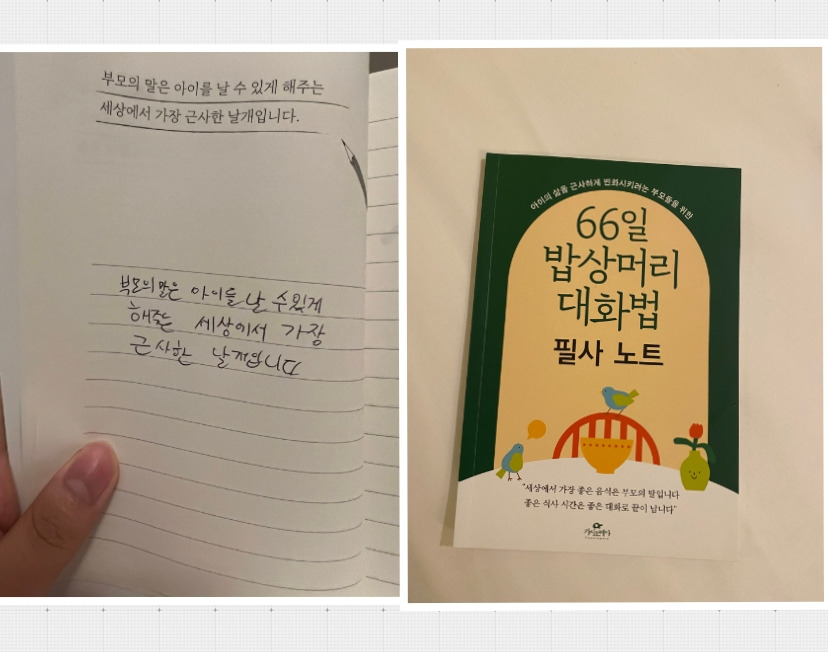 부모의 말은 아이를 날 수 있게 해주는
세상에서 가장 근사한 날개입니다.
부모의 말은 아이를 날 수 있게
해주는 세상에서 가장
근사한 날개입니다
아이의 삶을 근사하게 변화시키려는 부모들을 위한
66일
밥상머리
대화법
필사 노트
"세상에서 가장 좋은 음식은 부모의 말입니다
좋은 식사 시간은 좋은 대화로 끝이 납니다"